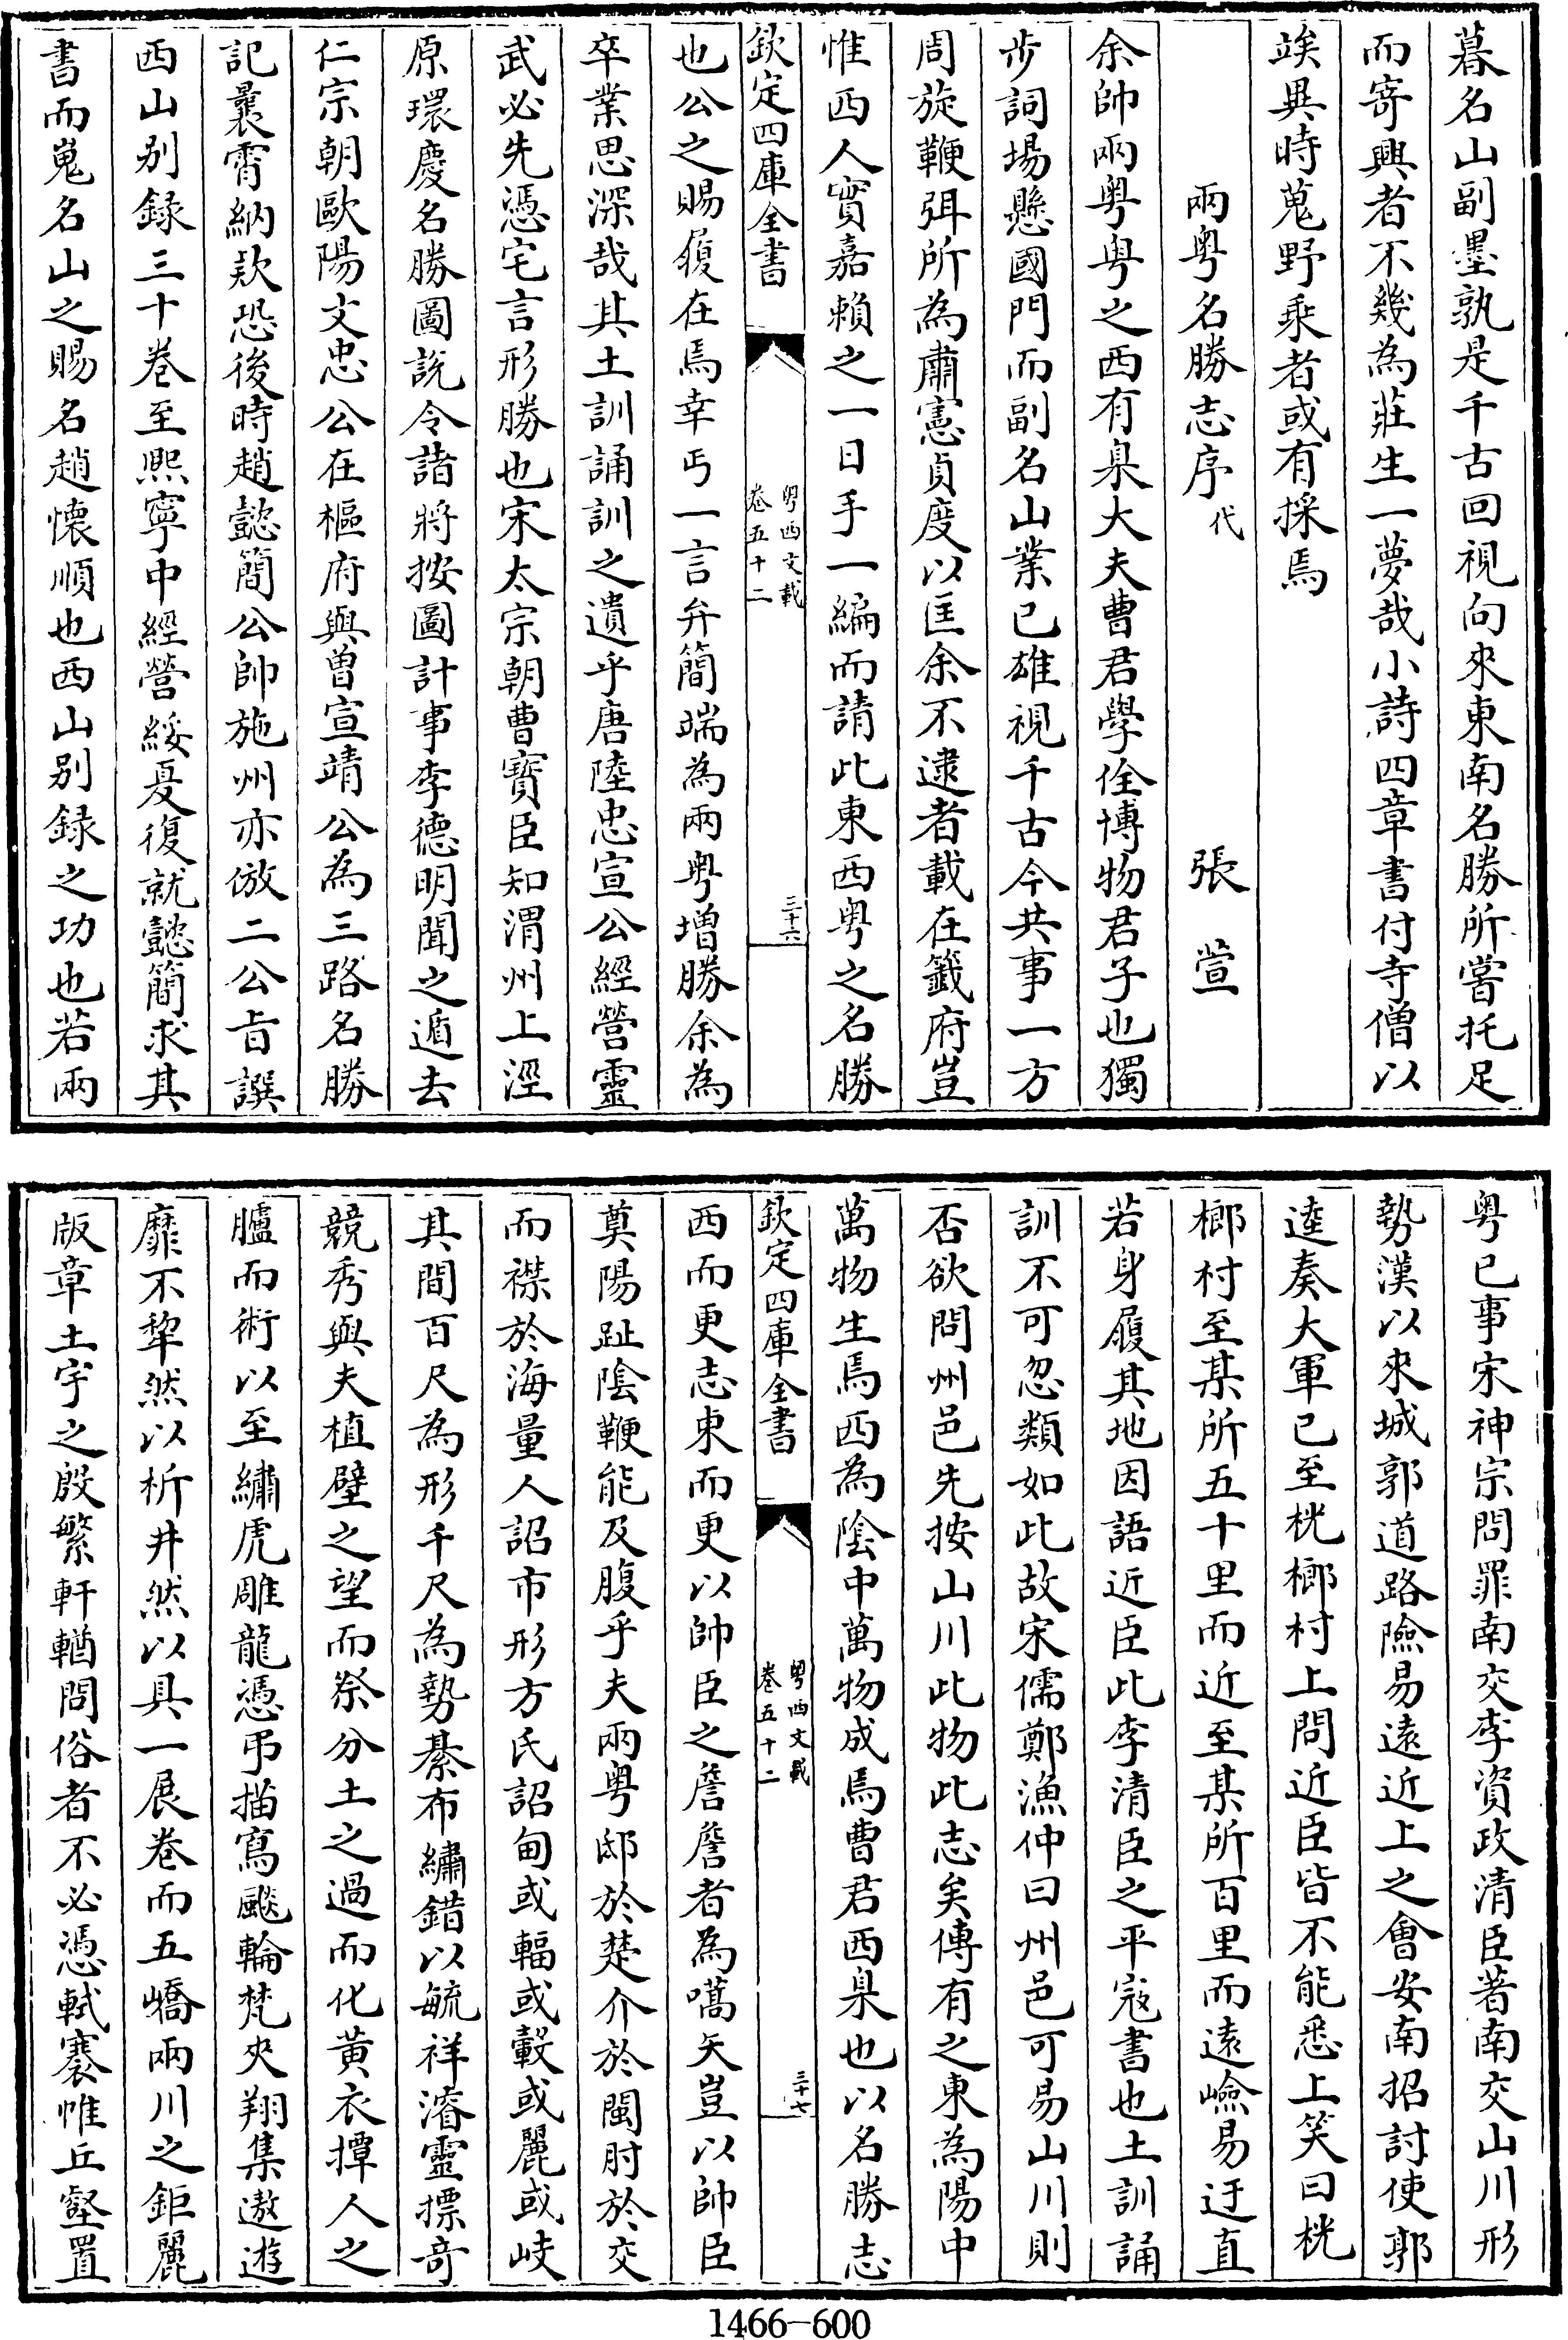 暮名山副墨孰是千古回視向來東南名勝所嘗托足
而寄興者不幾為莊生一夢哉小詩四章書付寺僧以
竢異時蒐野乘者或有採焉
兩粤名勝志序代 張萱
余帥兩粤粤之西有臬大夫曹君學佺博物君子也獨
步詞場懸國門而副名山業已雄視千古今共事一方
周旋鞭弭所為肅憲貞度以匡余不逮者載在籖府豈
惟西人實嘉賴之一日手一編而請此東西粤之名勝
欽定四庫全書 粤西文載 卷五十二 三十六
也公之賜履在焉幸丐一言弁簡端為兩粤增勝余為
卒業思深哉其土訓誦訓之遺乎唐陸忠宣公經營靈
武必先憑宅言形勝也宋太宗朝曹寳臣知渭州上涇
原環慶名勝圖説令諸將按圖計事李德明聞之遁去
仁宗朝歐陽文忠公在樞府與曾宣靖公為三路名勝
記曩霄納欵恐後時趙懿簡公帥施州亦倣二公㫖譔
西山别録三十卷至熙寧中經營綏夏復就懿簡求其
書而嵬名山之賜名趙懷順也西山别録之功也若兩
粤已事宋神宗問罪南交李資政清臣著南交山川形
勢漢以來城郭道路險易遠近上之會安南招討使郭
逵奏大軍已至桄榔村上問近臣皆不能悉上笑曰桄
榔村至某所五十里而近至某所百里而遠嶮易迂直
若身履其地因語近臣此李清臣之平寇書也土訓誦
訓不可忽類如此故宋儒鄭漁仲曰州邑可易山川則
否欲問州邑先按山川此物此志矣傳有之東為陽中
萬物生焉西為陰中萬物成焉曹君西臬也以名勝志
欽定四庫全書 粤西文載 卷五十二 三十七
西而更志東而更以帥臣之詹詹者為嚆矢豈以帥臣
奠陽趾陰鞭能及腹乎夫兩粤邸於楚介於閩肘於交
而襟於海量人詔市形方氏詔甸或輻或轂或麗或岐
其間百尺為形千尺為勢綦布繡錯以毓祥濬靈摽竒
競秀與夫植壁之望而祭分土之過而化黄衣撢人之
臚而術以至繡虎雕龍憑弔描寫飈輪梵夾翔集遨遊
靡不犂然以析井然以具一展卷而五嶠兩川之鉅麗
版章土宇之殷繁軒輶問俗者不必憑軾褰帷丘壑置
1466-600